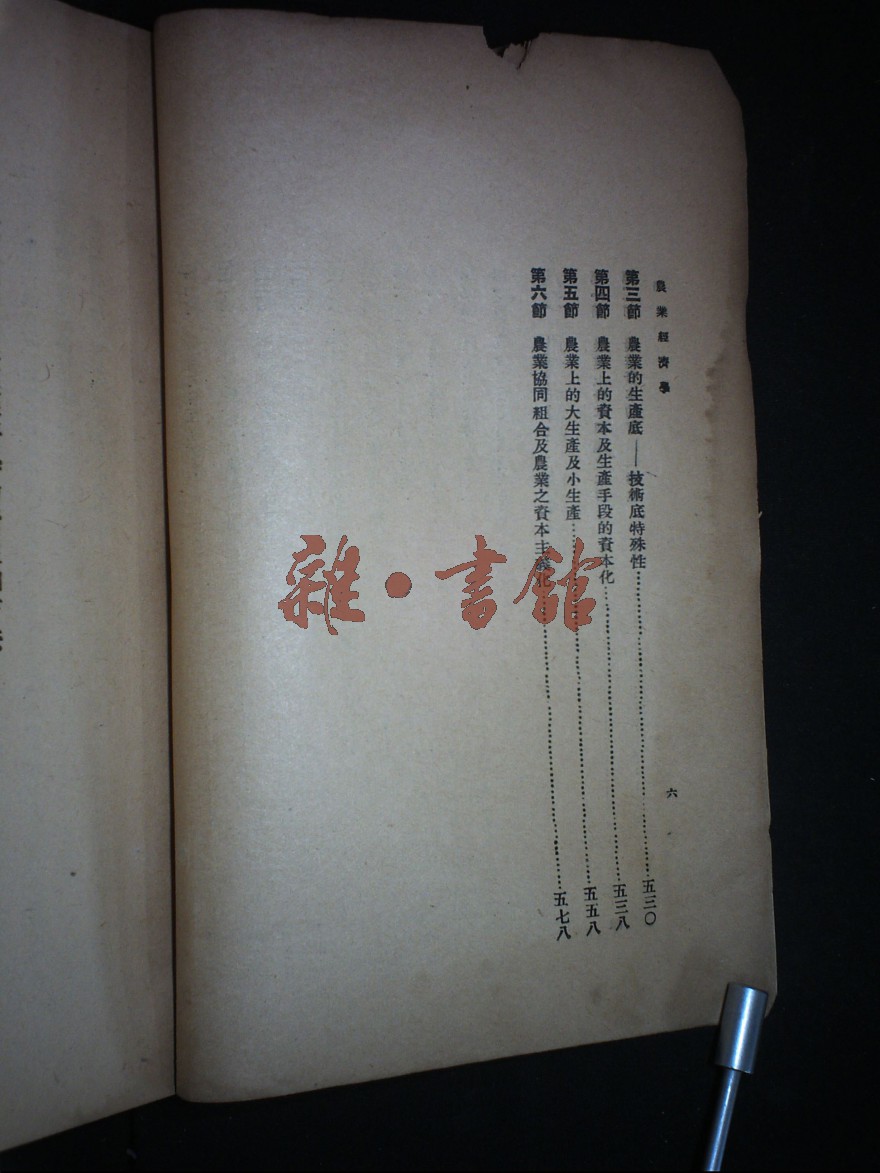 農業經濟學
六
第三節 農業的生產底——技術底特殊性…………五三〇
第四節 農業上的資本及生產手段的資本化…………五三八
第五節 農業上的大生產及小生產…………五五八
第六節 農業協同組合及農業之資本主義化…………五七八
雜·書館